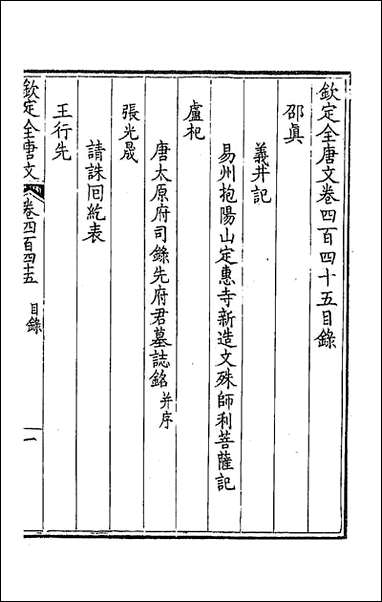 欽定全唐文卷四百四十五目錄
邵真
義井記
易州抱陽山定惠寺新造文殊師利菩薩記
盧杞
唐太原府司錄先府君墓誌銘 并序
張光晟
請誅回紇表
王行先
欽定全唐文 卷四百四十五 目錄 一